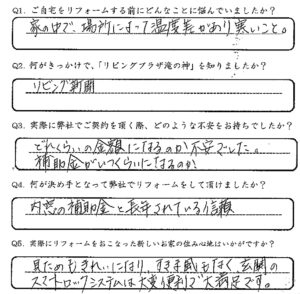 Q1. ご自宅をリフォームする前にどんなことに悩んでいましたか？
家の中で、場所によって温度差があり寒いこと。
Q2. 何がきっかけで、「リビングプラザ滝の神」を知りましたか？
リビング新聞
Q3. 実際に弊社でご契約を頂く際、どのような不安をお持ちでしたか？
どれくらいの金額になるのか不安でした。
補助金がいくらくらいになるのか
Q4. 何が決め手となって弊社でリフォームをして頂けましたか？
内窓の補助金と長年されている信頼
Q5. 実際にリフォームをおこなった新しいお家の住み心地はいかがですか？
見ためもきれいになり、すきま風もなく玄関の
スマートロックシステムは大変便利で大満足です。